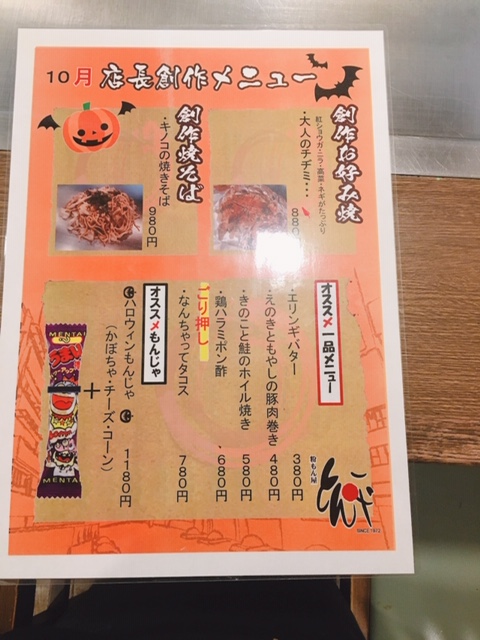 10月 店長創作メニュー
創作お好み焼
紅ショウガ・ニラ・高菜・ネギがたっぷり
・大人のチヂミ・・・
880
創作焼そば
・キノコの焼きそば
980円
オススメ一品メニュー
・エリンギバター 380円
・えのきともやしの豚肉巻き 480円
・きのこと鮭のホイル焼き 580円
・鶏ハラミポン酢 ・680円
ごり押し
・なんちゃってタコス 780円
オススメもんじゃ
ハロウィンもんじゃ 1180円
(かぼちゃ・チーズ・コーン)
+
MENTAI
うまい
MENTAI
粉もん屋
とん平
SINCE 1972